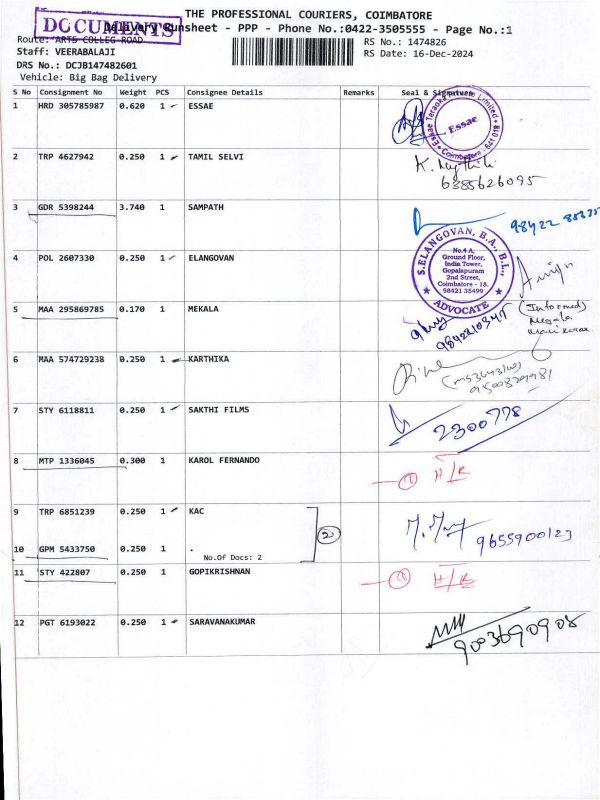 THE PROFESSIONAL COURIERS, COIMBATORE
DOCUMENTS
Delivery Runsheet - PPP - Phone No.:0422-3505555 - Page No.:1
Route: ARTS COLLEG ROAD
RS No.: 1474826
Staff: VEERABALAJI
RS Date: 16-Dec-2024
DRS No.: DCJB147482601
Vehicle: Big Bag Delivery
S No Consignment No Weight PCS Consignee Details Remarks Seal & Signature
1 HRD 305785987 0.620 1 ESSAE
Essae Teraoka Limited
Essae
Coimbatore - 641 018
2 TRP 4627942 0.250 1 TAMIL SELVI
K. Mythili
6385626095
3 GDR 5398244 3.740 1 SAMPATH
98422
4 POL 2607330 0.250 1 ELANGOVAN
S.ELANGOVAN, B.A., B.L.,
No.4 A,
Ground Floor,
India Tower,
Gopalapuram
2nd Street,
Coimbatore - 18.
98421 35499
ADVOCATE
5 MAA 295869785 0.170 1 MEKALA
(Informed)
6 MAA 574729238 0.250 1 KARTHIKA
7 STY 6118811 0.250 1 SAKTHI FILMS
2300778
8 MTP 1336045 0.300 1 KAROL FERNANDO
① H/R
9 TRP 6851239 0.250 1 KAC
②
9655900123
10 GPM 5433750 0.250 1 .
No.Of Docs: 2
11 STY 422807 0.250 1 GOPIKRISHNAN
① H/R
12 PGT 6193022 0.250 1 SARAVANAKUMAR
9003690908